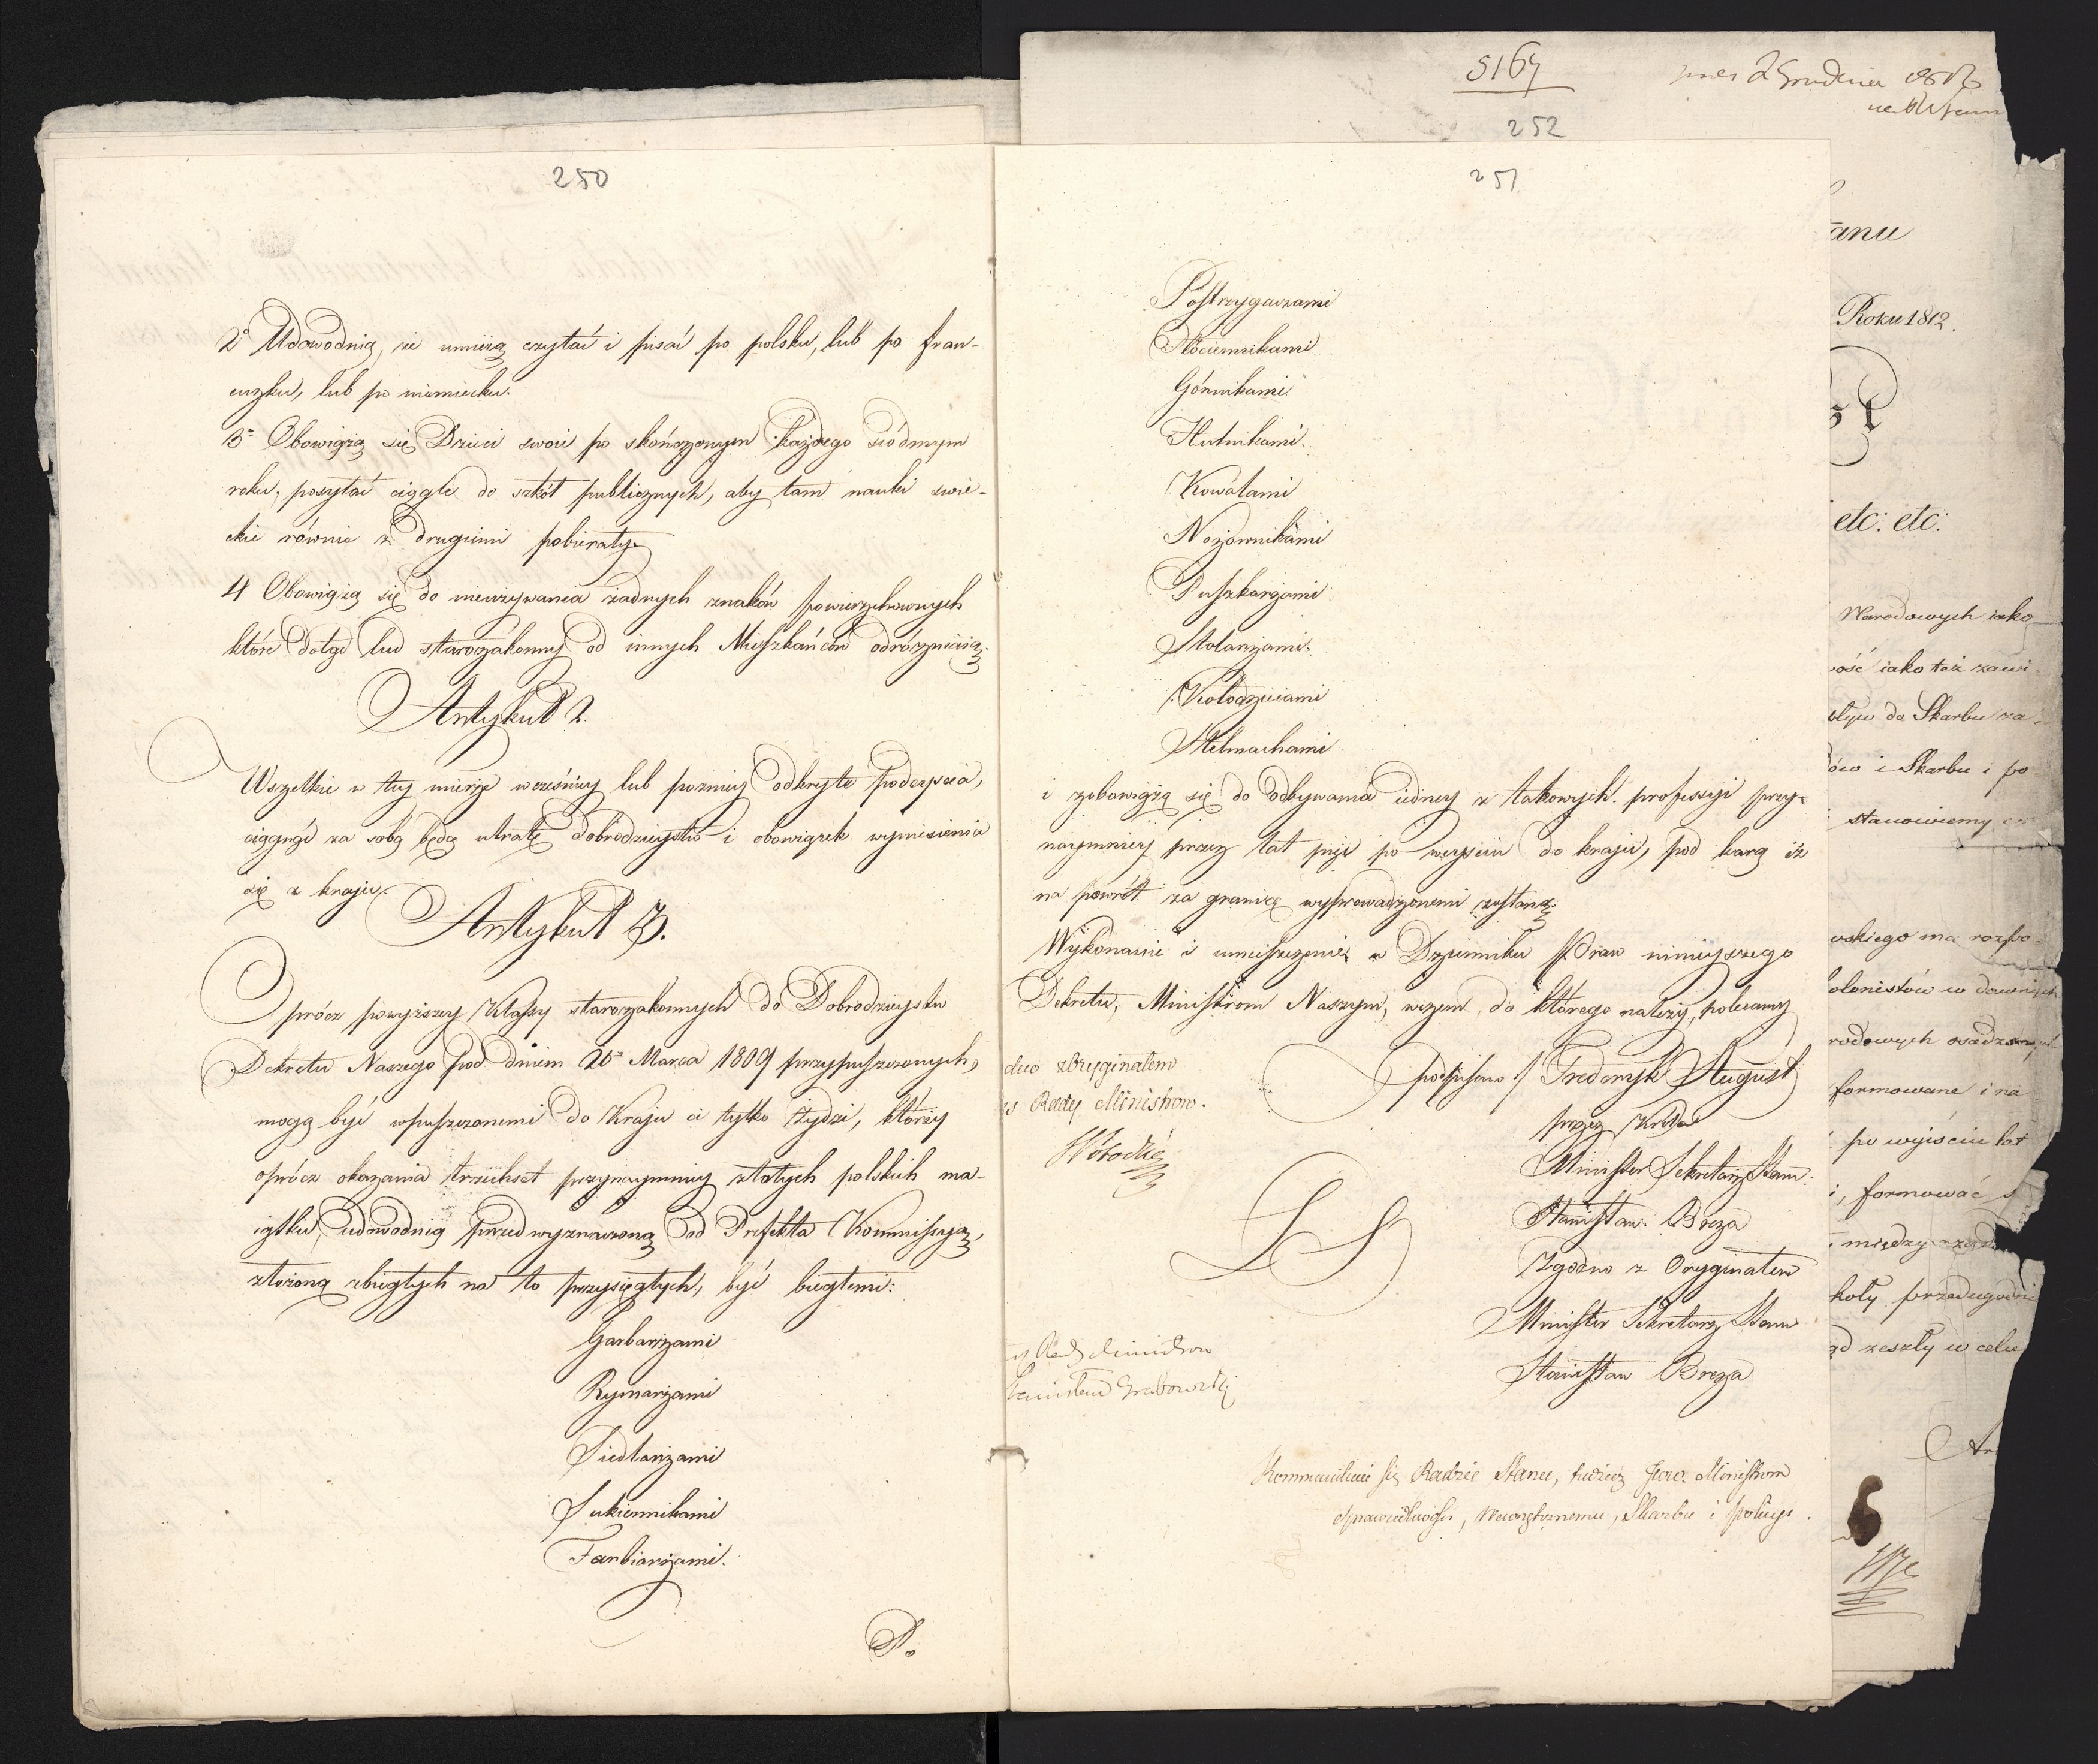 250
2° Udowodnią, że umieią czytać i pisać po polsku, lub po fran-
cuzku, lub po niemiecku.
3° Obowiążą się Dzieci swoie po skończonym każdego siódmym
roku, posyłać ciągle do szkół publicznych, aby tam nauki swie-
ckie równie z drugiemi pobierały.
4 Obowiążą się do nieużywania żadnych znaków powierzchownych
które dotąd lud starozakonny od innych Mieszkańców odrózniaią.
Artykuł 2.
Wszelkie w tey mierze wcześniey lub pozniey odkryte podeyscia,
ciągnąć za sobą będą utratę dobrodzieystw i obowiązek wyniesienia
się z kraju.
Artykuł 3.
Oprócz powyższey Klassy starozakonnych do Dobrodzieystw
Dekretu Naszego pod dniem 20° Marca 1809 przypuszczonych,
mogą być wpuszczonemi do Kraju ci tylko żydzi, którzy
oprócz okazania trzechset przynaymniey złotych polskich ma-
iątku, udowodnią przed wyznaczoną od Prefekta Kommissyą,
złożoną z biegłych na to przysięgłych, być biegłemi:
Garbarzami
Rymarzami
Siedlarzami
Sukiennikami
Farbiarzami.
P.
251
Postrzygaczami
Płóciennikami
Górnikami
Hutnikami.
Kowalami
Nożownikami
Puszkarzami
Stolarzami.
Kołodzieiami
Stelmachami
i zobowiążą się do odbywania iedney z takowych professyi przy-
naymniey przez lat pięć po weyściu do kraju, pod karą iż
na powrót za granicę wyprowadzonemi zostaną.
Wykonanie i umieszczenie w Dzienniku Praw ninieyszego
Dekretu, Ministrom Naszym, wczem do którego należy, polecamy
podpisano :/ Frederyk August
przez Króla
Minister Sekretarz Stanu
Stanisław Breza
Zgodno z Oryginałem
Minister Sekretarz Stanu
Stanisław Breza
dno z Oryginałem
Rady Ministrow.
L S
Rady Ministrow
Stanisław Grabowski
Kommunikuie się Radzie Stanu, tudzież Ministrom
Sprawiedliwości, Wewnętrznemu, Skarbu i Policyi.
5164
2 Grudnia
252
anu
Roku 1812.
etc: etc:
Narodowych iako
ość iako też zawi
pływ do Skarbu za
ów i Skarbu i po
stanowiemy
wskiego ma rozpo
olonistów w dawnych
rodowych osadzonych
formowane i na
po wyiściu lat
i, formować
między
koły
ąd zeszły w celu